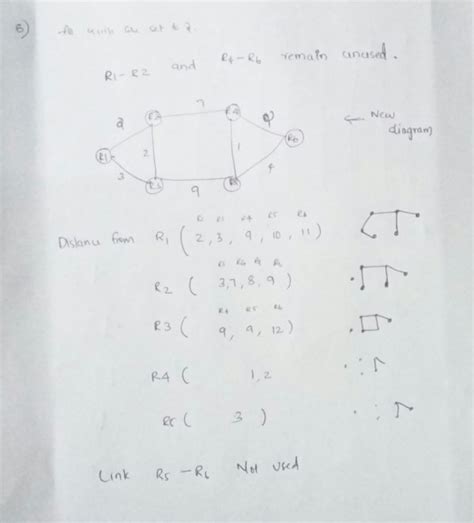 B)
R1-R2 and R4-R6 remain unused.
7
R2
R4
2
R6
← New diagram
R1
2
1
3
4
R3
R5
9
Distance from R1 ( 2, 3, 9, 10, 11 )
R2 ( 3, 7, 8, 9 )
R3 ( 9, 9, 12 )
R4 ( 1, 2
R5 ( 3 )
Link R5 - R6 Not used